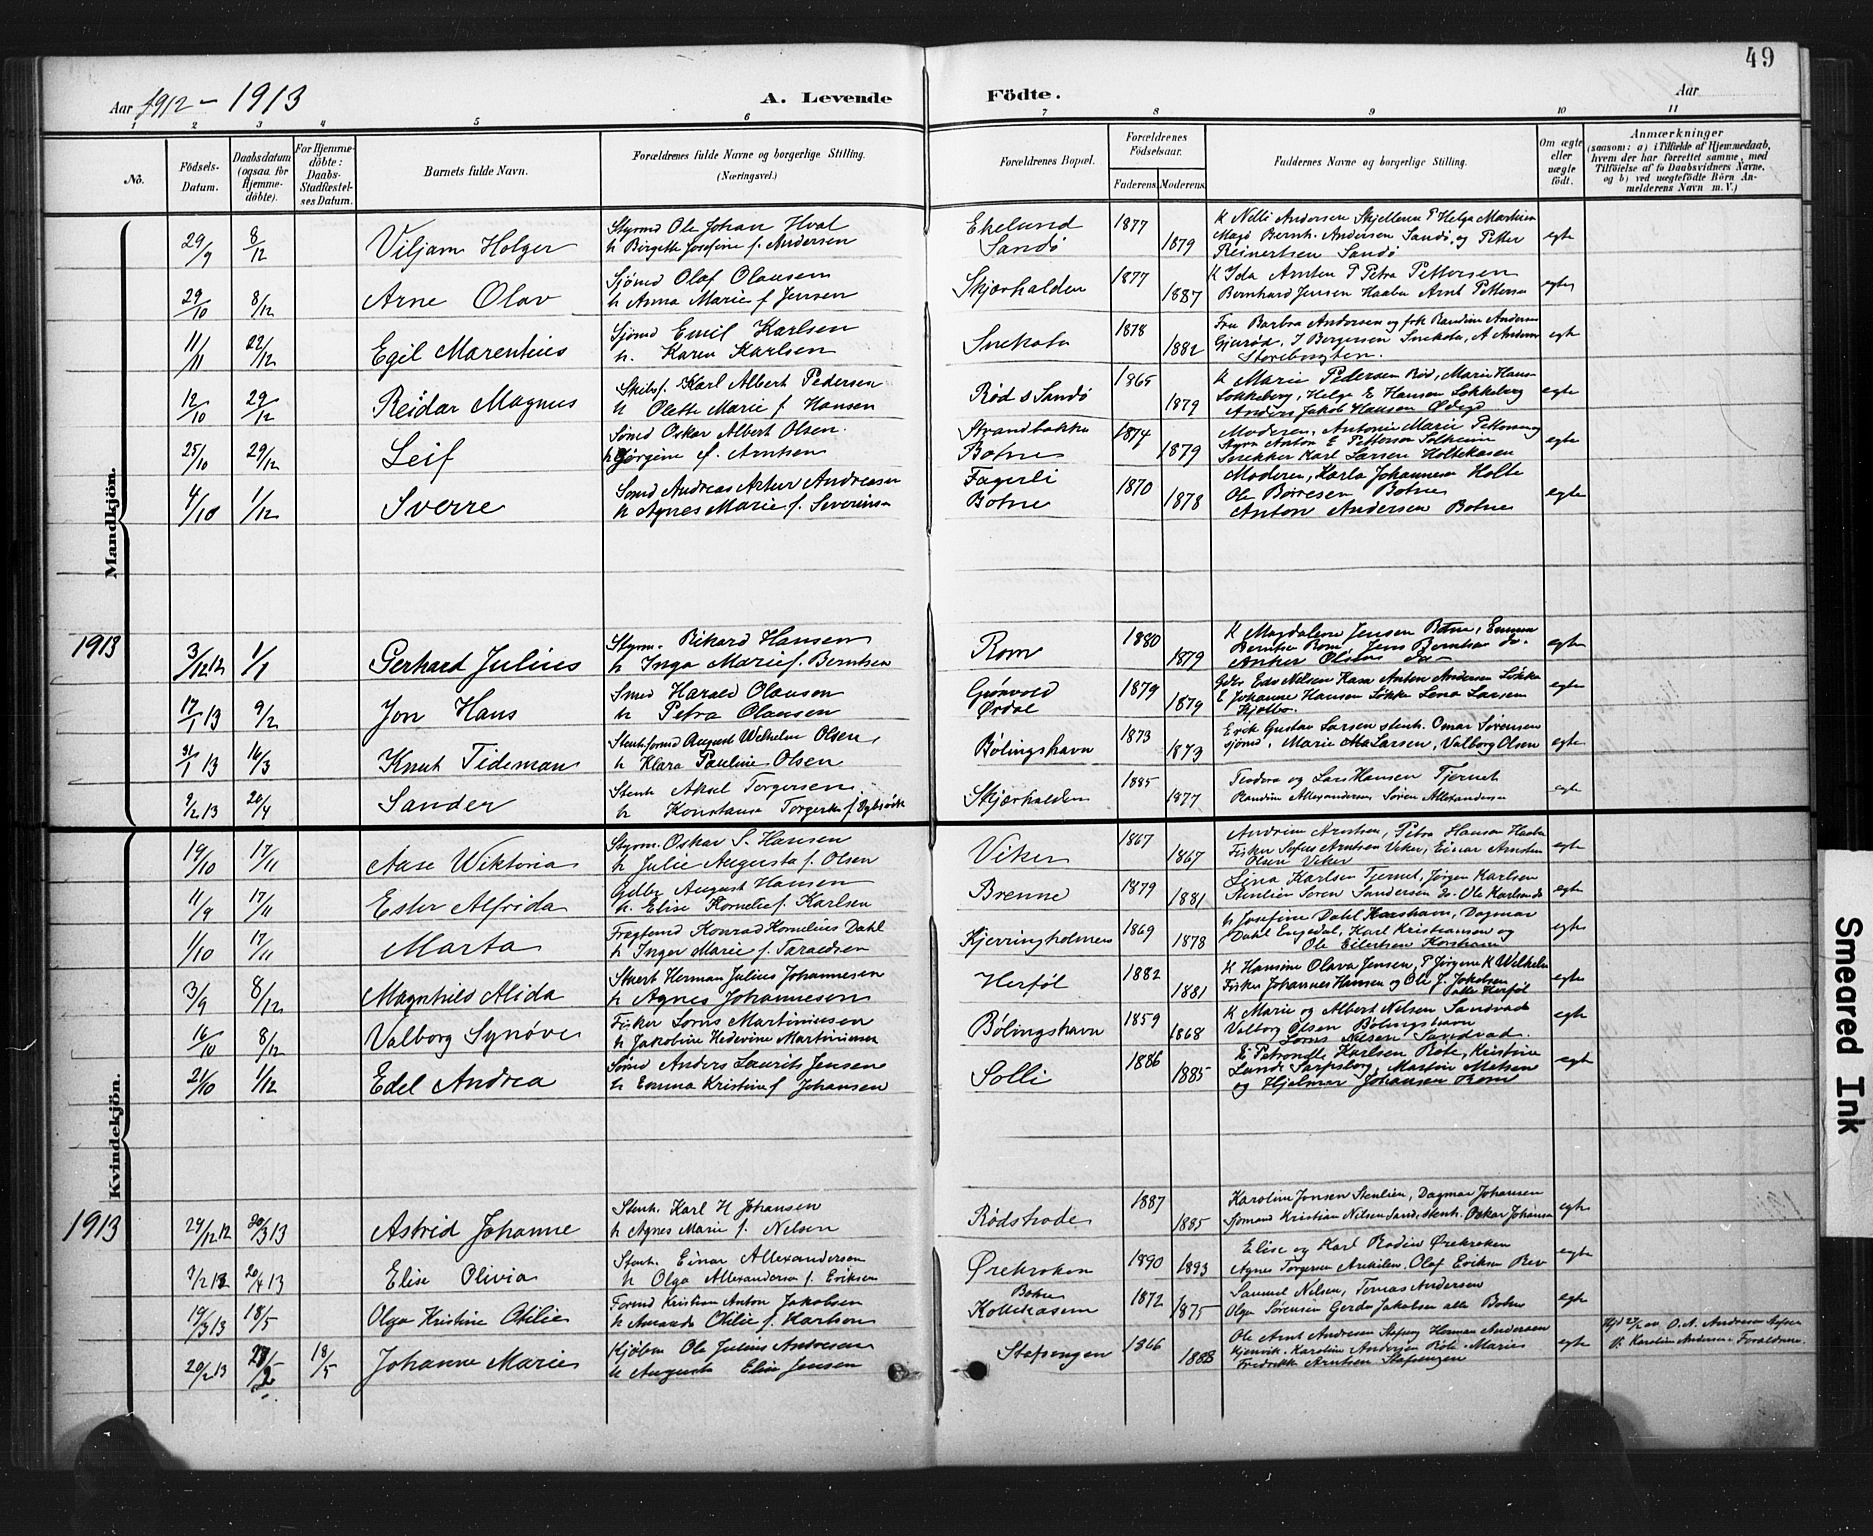 49
Aar 1912 – 1913 A. Levende Födte. Aar
1 2 3 4 5 6 7 8 9 10 11
No.
Födsels-Datum.
Daabsdatum (ogsaa for Hjemmedöbte).
For Hjemmedöbte: Daabs-Stadfæstelses Datum.
Barnets fulde Navn.
Forældrenes fulde Navne og borgerlige Stilling. (Næringsvei.)
Forældrenes Bopæl.
Forældrenes Födselsaar.
Faderens. Moderens.
Faddernes Navne og borgerlige Stilling.
Om ægte eller uægte födt.
Anmærkninger (saasom: a) i Tilfælde af Hjemmedaab, hvem der har forrettet samme, med Tilföielse af to Daabsvidners Navne, og b) ved uægtefödte Börn Anmelderens Navn m. V.)
Mandkjön.
29/9 8/12 Viljam Holger
Styrmd Ole Johan Hval
h Birgitte Josefine f. Andersen
Ekelund
Sandö
1877 1879
K Nelli Andersen Skjelleru P Helga Martinsen
Magd Bernh. Andersen Sandö, og Petter
Reinertsen Sandö
egte
29/10 8/12 Arne Olav
Sjömd Olaf Olausen
h Anna Marie f Jensen
Skjærhalden
1877 1887
K Ida Arntzen P Petra Pettersen
Bernhard Jensen Haabu Arnt Pettersen
egte
11/11 22/12 Egil Marentius
Sjömd Emil Karlsen
h. Karen Karlsen
Snekota
1878 1882
Fru Barbra Andersen og frk Randine Andersen
Gjeröd, J Börgersen Snekota, A Andersen
Storebugten.
egte
12/10 29/12 Reidar Magnus
Skibsf. Karl Albert Pedersen
h Olette Marie f Hansen
Röd s Sandö
1865 1879
K Marie Pedersen Röd, Marie Hansen
Lökkeberg, Helge E Hansen Lökkeberg
Anders Jakob Hansen Ödegd
egte
25/10 29/12 Leif
Sömd Oskar Albert Olsen.
h Jörgine f. Arntsen
Strandbakken
Botne
1874 1879
Moderen, Antonie Marie Pettersen og
Styrm Anton E Petterson Solheim
Snekker Karl Larsen Holtekasen
egte
4/10 1/12 Sverre
Sömd Andreas Artur Andreasen
h Agnes Marie f. Severinsen
Fagerli
Botne
1870 1878
Moderen, Karla Johannesen Holte
Ole Börresen Botne
Anton Andersen Botne
egte
1913
3/12 12 1/1 Gerhard Julius
Styrm. Rikard Hansen
h Inga Marie f. Berntsen
Rom
1880 1879
K Magdalene Jensen Botne, Emma
Berntsen Rom, Jens Berntsen do.
Anker Olsen do
egte
17/1 13 9/2 Jon Hans
Smed Harald Olausen
h Petra Olausen
Grönvold
Ördal
1879 1879
Gdbr Edv Nelsen Kasa Anton Andersen Lökke
E Johanne Hansen Lökke Lena Larsen
Kjölbo.
egte
31/1 13 16/3 Knut Tideman
Stenh. formd August Wilhelm Olsen
h Klara Pauline Olsen
Bölingshavn
1873 1873
Erik Gustav Larsen stenh. Omar Sörensen
sjömd, Marie Larsen, Valborg Olsen
egte
9/2 13 20/4 Sander
Stenh Aksel Torgersen
h Konstanse Torgersen f Dybsvik
Skjærhalden
1885 1877
Teodora og Lars Hansen Tjernet
Randine Allexandersen, Sören Allexandersen
egte
Kvindekjön.
19/10 17/11 Aase Wiktoria
Styrm. Oskar S. Hansen
h Julie Augusta f. Olsen
Viker
1867 1867
Andrine Arntsen, Petra Hansen Haabu
Fisker Sofus Arntsen Viker, Einar Arntsen
Olsen Viker
egte
11/9 17/11 Ester Alfrida
Gdbr August Hansen
h. Elise Kornelie f. Karlsen
Brenne
1879 1881
Lina Karlsen Tjernet, Jörgen Karlsen
Stenlien Sören Sandersen do. Ole Karlsen do
egte
1/10 17/11 Marta
Fragtemd Konrad Kornelius Dahl
h Inger Marie f. Taraldsen
Kjerringholmen
1869 1878
h Josefine Dahl Korshavn, Dagmar
Dahl Engedal, Karl Kristiansen og
Ole Eilertsen Korshavn
egte
3/9 8/12 Magnhild Alida
Stuert Herman Julius Johannesen
h Agnes Johannesen
Herföl
1882 1881
K Hansine Olava Jensen, P Jörgine K Wilhelmsen
Fisker Johannes Hansen og Ole J. Jakobsen
alle Herföl
egte
16/10 8/12 Valborg Synöve
Fisker Lorns Martiniusen
h Jakobine Hedevine Martiniusen
Bölingshavn
1859 1868
K Marie og Albert Nelsen Sandvad
Valborg Olsen Bölingshavn
Lorns Nelsen Sandvad.
egte
21/10 1/12 Edel Andrea
Sömd Anders Laurits Jensen
h Emma Kristine f Johansen
Solli
1886 1885
E Petronelle Karlsen Röte, Kristine
Lunde Sarpsborg, Martin Madsen
og Hjelmar Johansen Rom
egte
1913
29/12 12 20/3 13 Astrid Johanne
Stenh. Karl H Johansen
h Agnes Marie f. Nelsen
Rödshode
1887 1885
Karoline Jensen Stenlien, Dagmar Johansen
Sömand Kristian Nelsen Sand, stenh. Oskar Johansen
egte
9/2 13 20/4 13 Elise Olivia
Stenh. Einar Allexandersen
h Olga Allexandersen f. Eriksen
Örekroken
1890 1893
Elise og Karl Bodin Örekroken
Agnes Torgersen Arekilen, Olaf Eriksen Rev
egte
19/3 13 18/5 Olga Kristine Otilie
Formd Kristian Anton Jakobsen
h Amanda Otilie f. Karlson
Botne
Kollekasem
1872 1875
Samuel Nelsen, Tomas Andersen
Olga Sörensen Gerda Jakobsen alle Botne
egte
20/2 13 21/2 18/5 Johanne Marie
Hjölbm Ole Julius Andresen
h Augusta Elise Jensen
Stafsengen
1866 1888
Ole Arnt Andresen Stafseng Herman Andersen
Kjenvik. Karoline Andersen Röte. Marie
Fredrikke Arntsen Stafsengen
egte
Hjd 21/2 av O. A. Andresen Stafsen
V. Karoline Andersen Forældrene.
Smeared Ink